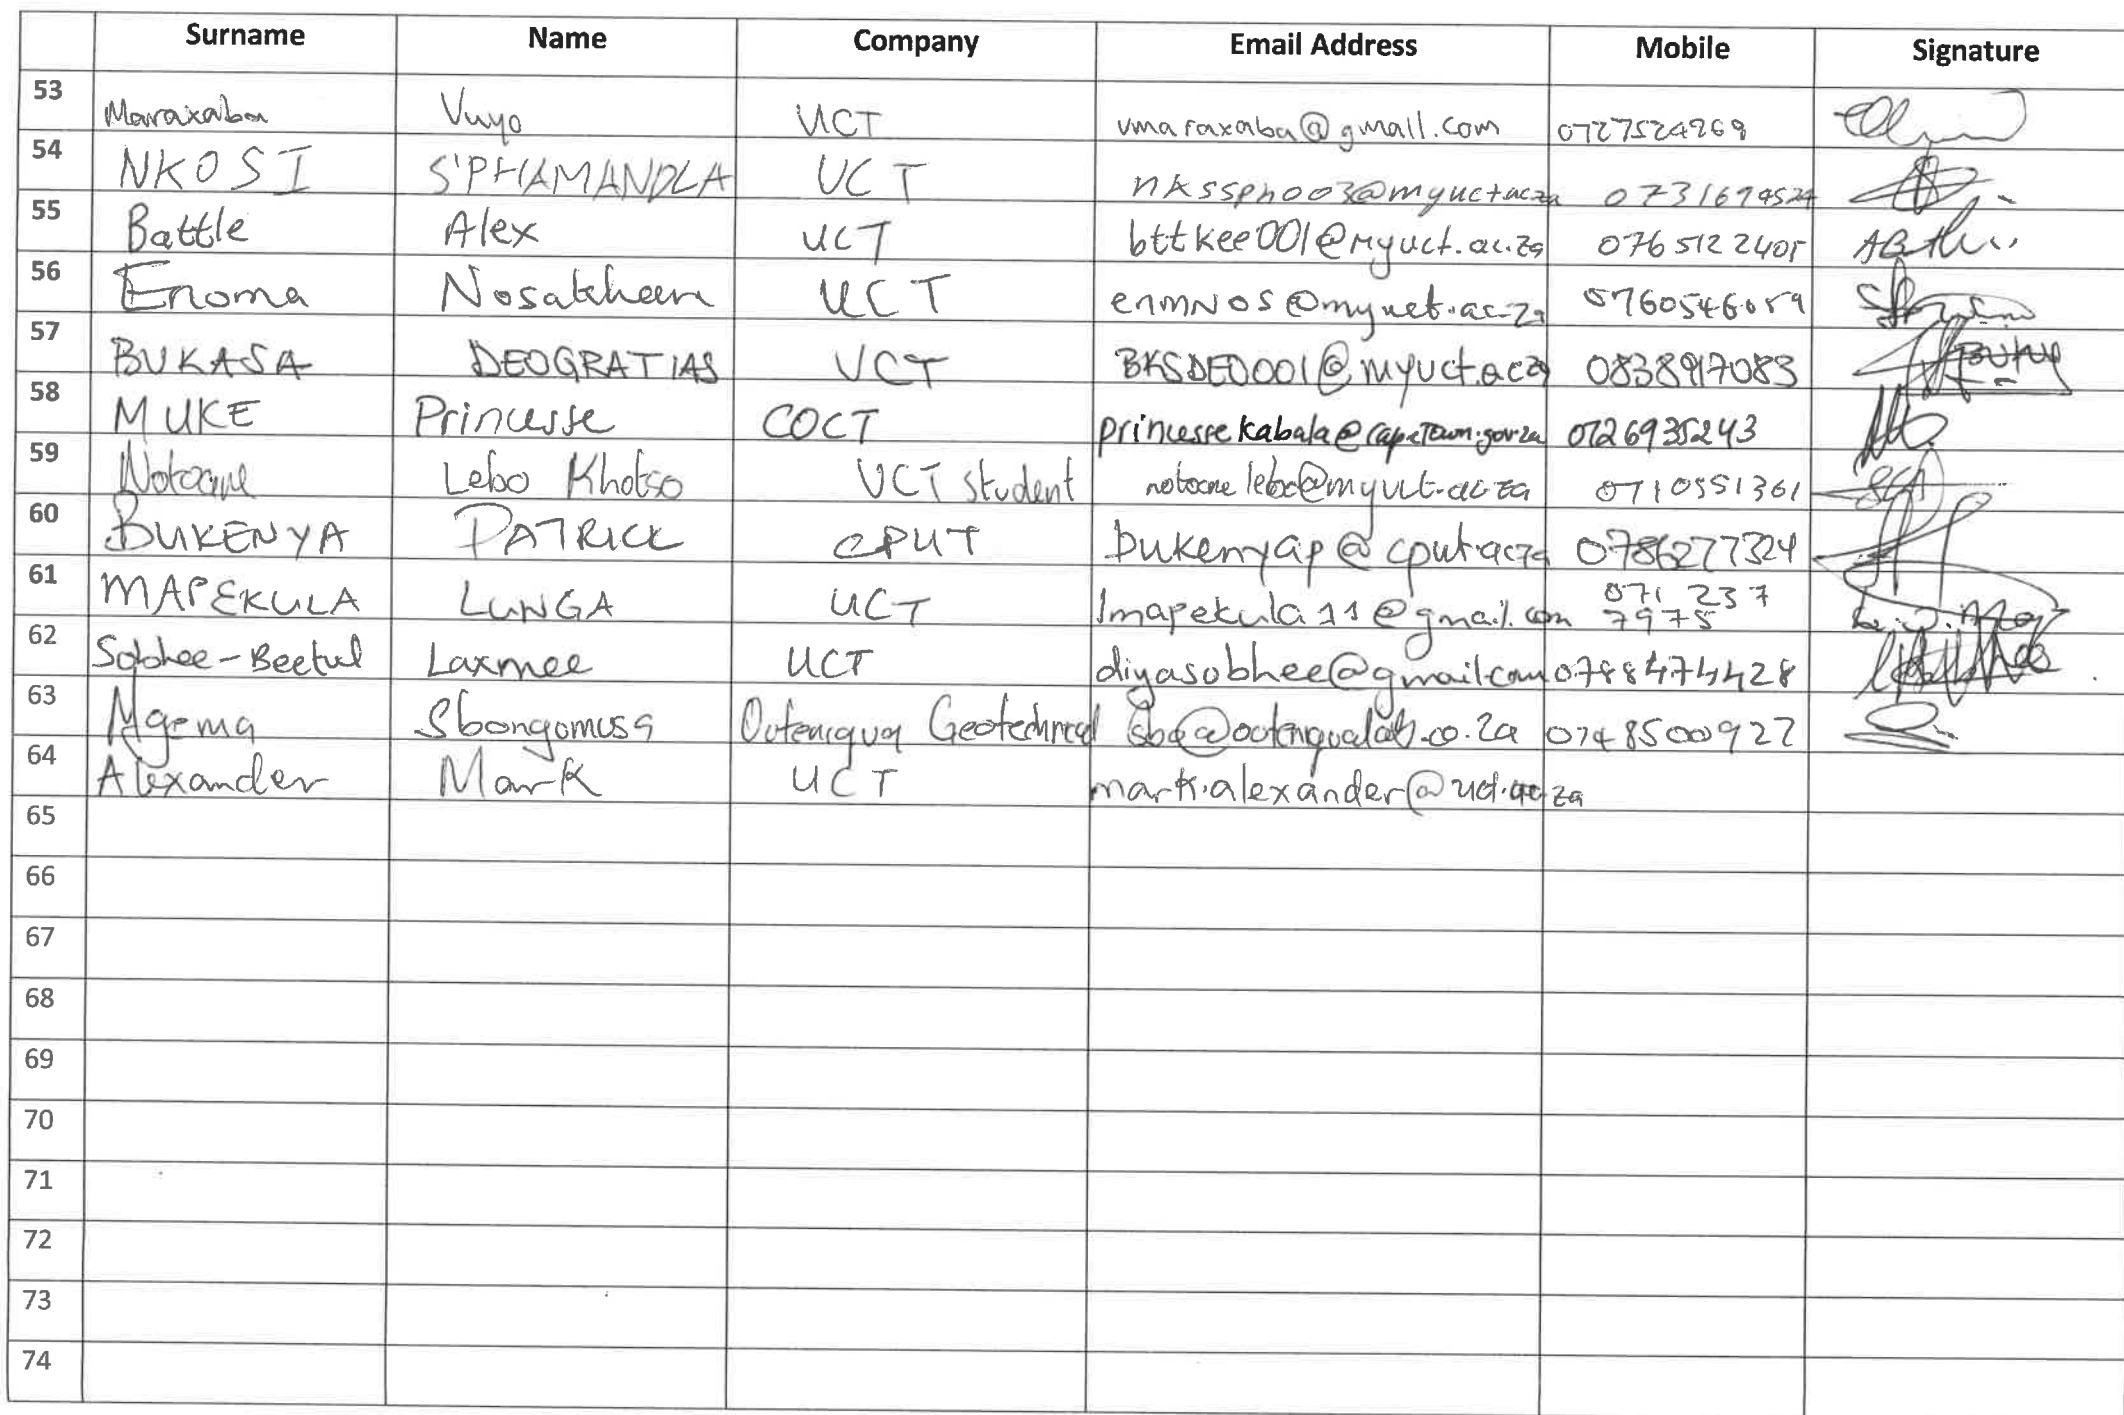 Surname Name Company Email Address Mobile Signature
53 Maraxaba Vuyo UCT vmaraxaba@gmail.com 0727524269
54 NKOSI S'PHAMANDLA UCT nkssph003@myuct.ac.za
55 Battle Alex UCT bttkee001@myuct.ac.za 076 512 2405
56 Enoma Nosakheen UCT enmNOS@myuct.ac.za
57 BUKASA DEOGRATIAS UCT BKSDEO001@myuct.ac.za 0838917083
58 MUKE Princesse COCT princesse kabala@capetown.gov.za 0726935243
59 Lebo Khotso UCT student 0710551361
60 BUKENYA PATRICK CPUT bukenyap@cput.ac.za 0786277324
61 MAPEKULA LUNGA UCT lmapekula11@gmail.com 071 237 7975
62 Sobhee-Beetul Laxmee UCT diyasobhee@gmail.com 0788474428
63 Mgema Sbongomusa Outeniqua Geotechnical 0748500927
64 Alexander Mark UCT mark.alexander@uct.ac.za
65
66
67
68
69
70
71
72
73
74